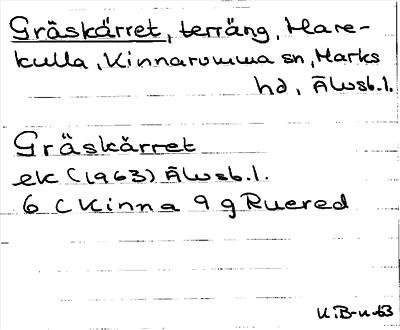 Gräskärret, terräng, Hare-
kulla, Kinnarumma sn, Marks
hd, Älvsb.l.
Gräskärret
ek (1963) Älvsb.l.
6 C Kinna 9 g Ruered